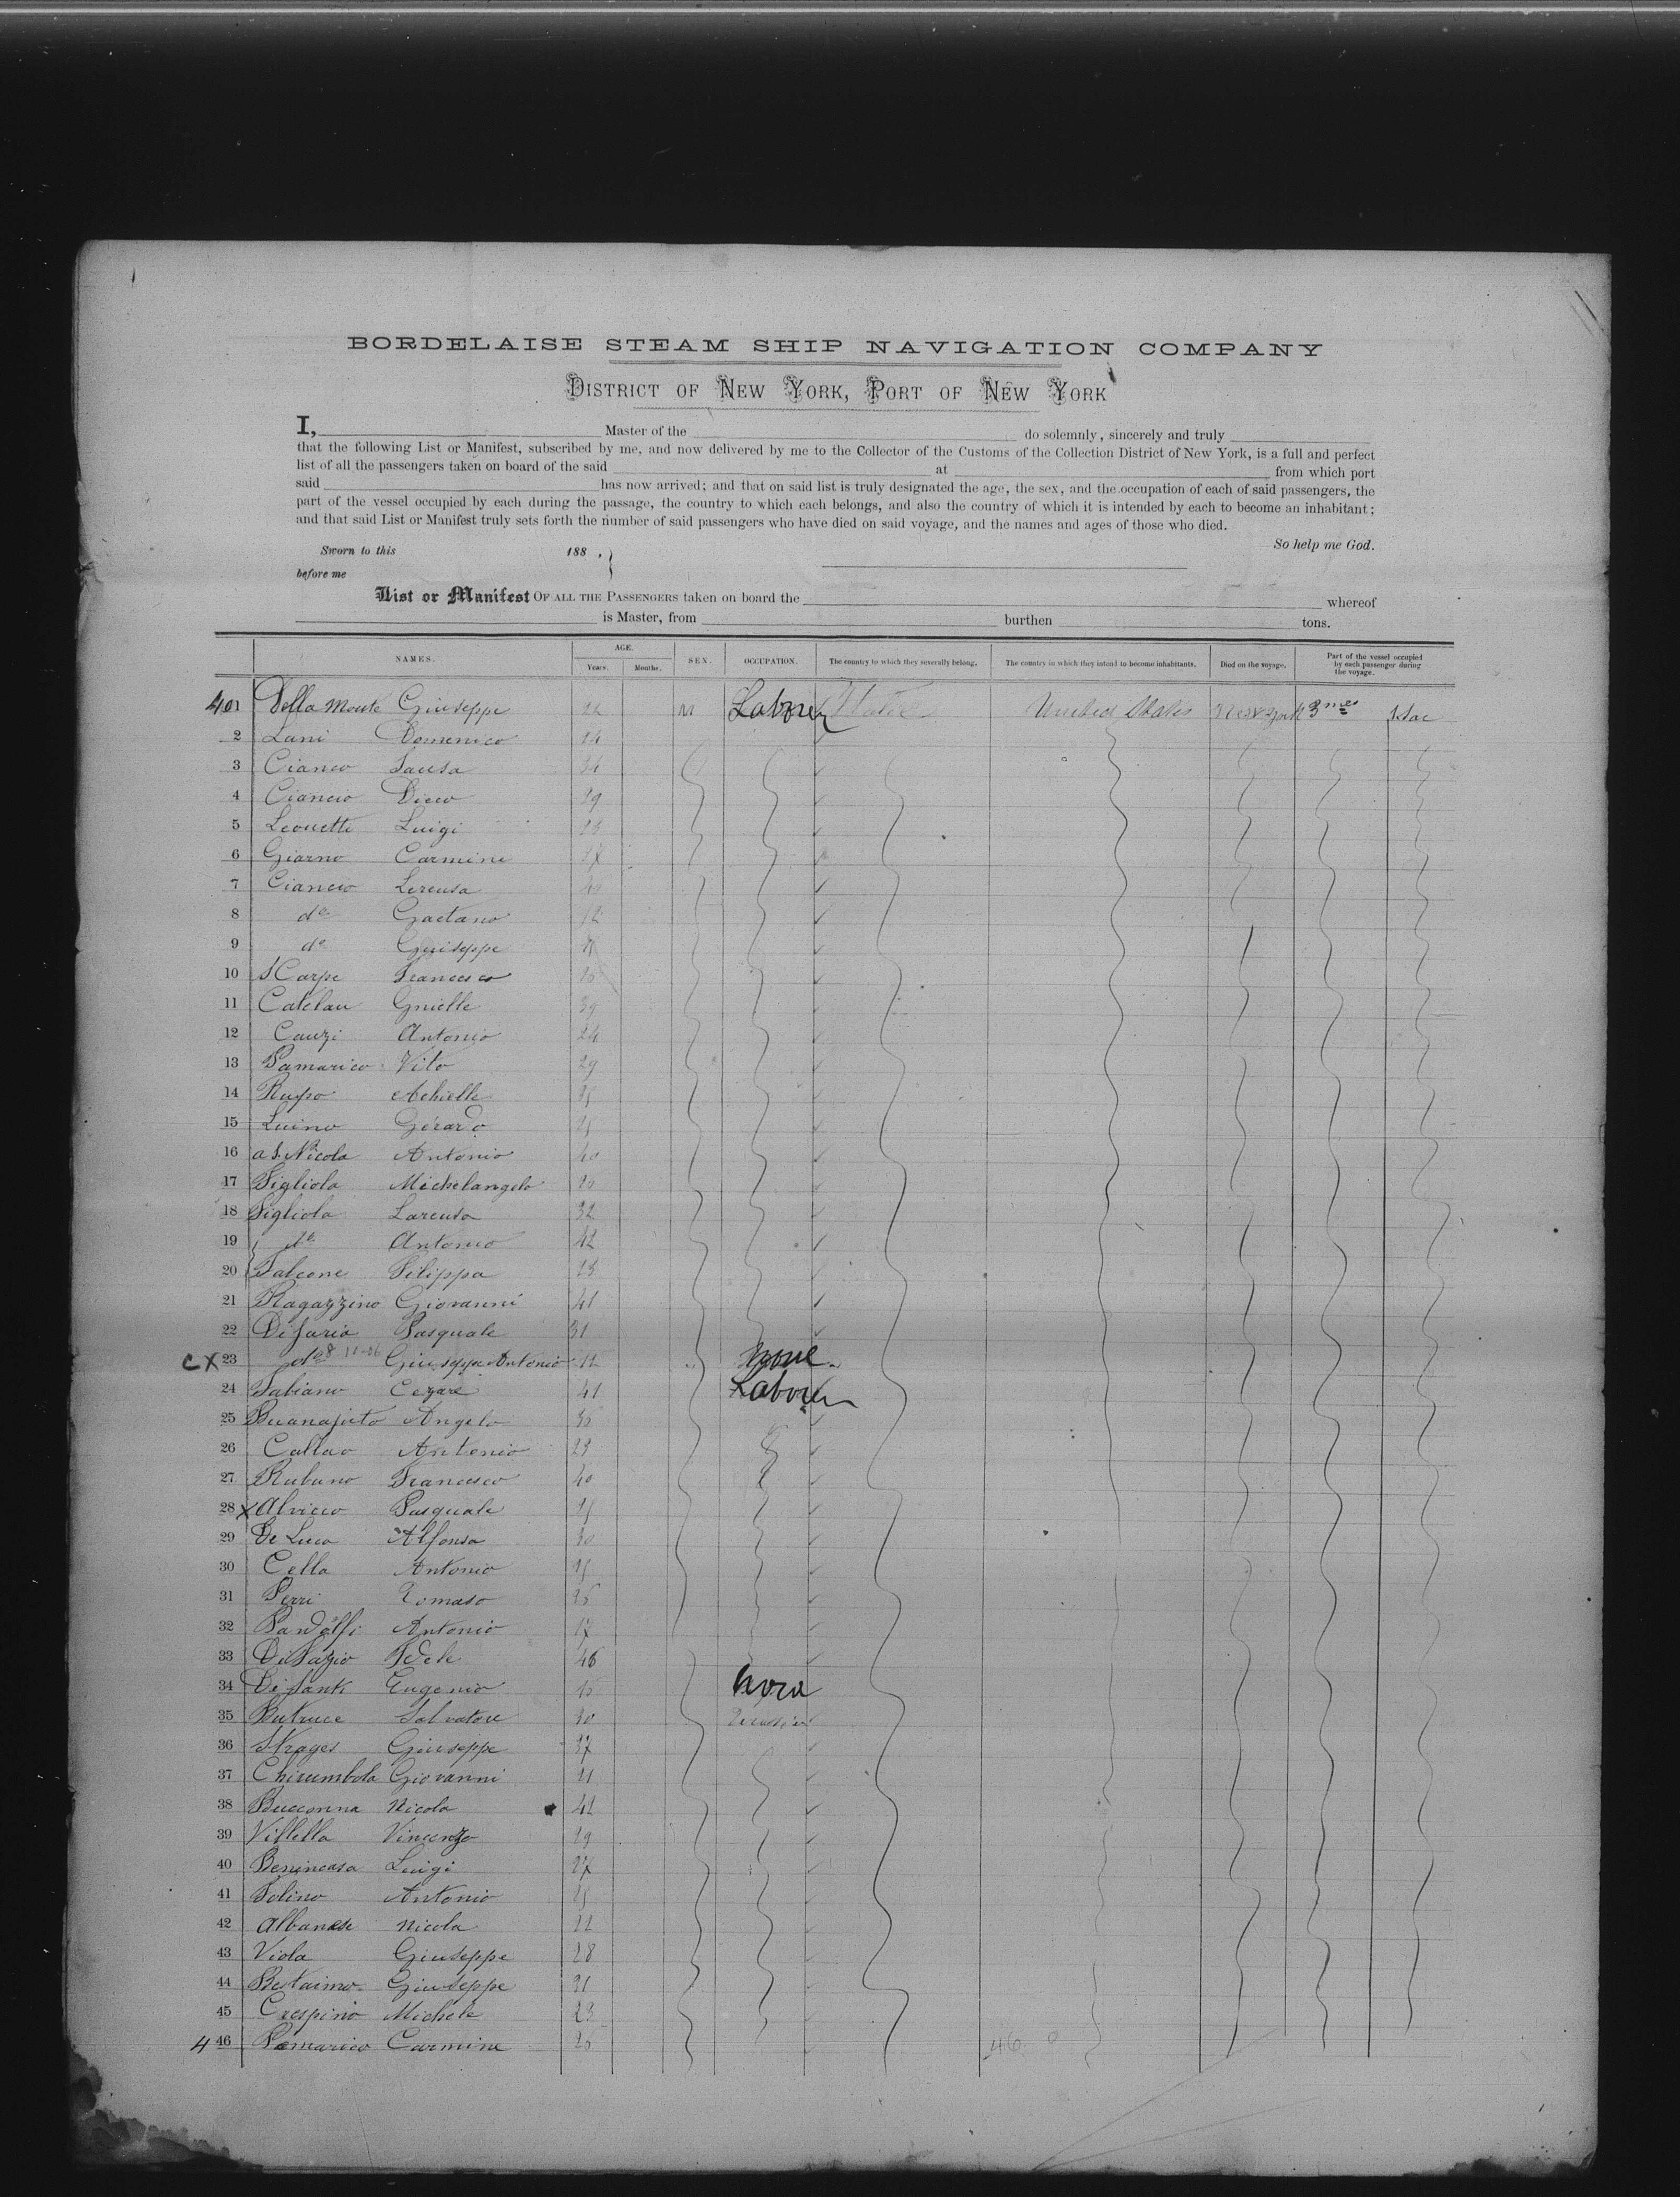 BORDELAISE STEAM SHIP NAVIGATION COMPANY
DISTRICT OF NEW YORK, PORT OF NEW YORK
I, Master of the do solemnly, sincerely and truly
that the following List or Manifest, subscribed by me, and now delivered by me to the Collector of the Customs of the Collection District of New York, is a full and perfect
list of all the passengers taken on board of the said at from which port
said has now arrived; and that on said list is truly designated the age, the sex, and the occupation of each of said passengers, the
part of the vessel occupied by each during the passage, the country to which each belongs, and also the country of which it is intended by each to become an inhabitant;
and that said List or Manifest truly sets forth the number of said passengers who have died on said voyage, and the names and ages of those who died.
So help me God.
Sworn to this 188 .
before me
List or Manifest OF ALL THE PASSENGERS taken on board the whereof
is Master, from burthen tons.
NAMES. AGE. Years. Months. SEX. OCCUPATION. The country to which they severally belong. The country in which they intend to become inhabitants. Died on the voyage. Part of the vessel occupied by each passenger during the voyage.
401 Della Monte Giuseppe 22 M Laborer Italie United States New York 3mes 1 Sac
2 Lani Domenico 24
3 Cianco 34
4 Ciancio Dieco 29
5 Leonetti Luigi 23
6 Giorno Carmine 27
7 Ciancio 40
8 do Gaetano 12
9 do Giuseppe 8
10 Francesco
11 Catelau 39
12 Cauzi Antonio 24
13 Pamarico Vito 29
14 Rupo Achielle 25
15 Luino Gerardo 25
16 a S. Nicola Antonio 40
17 Figliola Michelangelo 20
18 Figliola Larensa 32
19 do Antonio 42
20 Falcone Filippa 23
21 Ragazzino Giovanni 41
22 Di Jaria Pasquale 31
CX 23 do Giuseppe Antonio 11 none
24 Fabiano Cezare 41 Laborer
25 Buanajuto Angelo 30
26 Callao Antonio 23
27 Rubuno Francesco 40
28 X Alvicco Pasquale 25
29 De Luca Alfonso 30
30 Cella Antonio 25
31 Perri Tomaso 26
32 Pandolfi Antonio 17
33 Di Fazio Fedele 46
34 Di Santi Eugenio 15
35 Butruce Salvatore 30
36 Strages Giuseppe 37
37 Chirumbola Giovanni 21
38 Bucconna Nicola 42
39 Villella Vincenzo 29
40 Benincasa Luigi 27
41 Folino Antonio 25
42 Albanese Nicola 22
43 Viola Giuseppe 28
44 Bestaimo Giuseppe 31
45 Crespino Michele 23
4 46 Pamarico Carmine 26 46